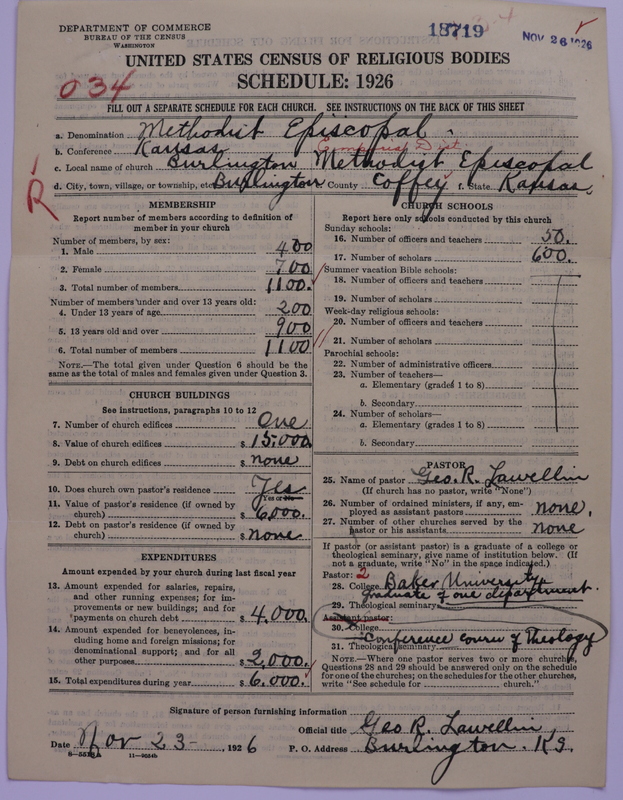 DEPARTMENT OF COMMERCE
BUREAU OF THE CENSUS
WASHINGTON
18719
NOV 26 1926
UNITED STATES CENSUS OF RELIGIOUS BODIES
SCHEDULE: 1926
034
FILL OUT A SEPARATE SCHEDULE FOR EACH CHURCH. SEE INSTRUCTIONS ON THE BACK OF THIS SHEET
a. Denomination Methodist Episcopal.
b. Conference Kansas Emporia Dist
c. Local name of church Burlington Methodist Episcopal
d. City, town, village, or township, etc. Burlington County Coffey f. State Kansas
R
MEMBERSHIP
Report number of members according to definition of
member in your church
Number of members, by sex:
1. Male 400
2. Female 700
3. Total number of members 1100.
Number of members under and over 13 years old:
4. Under 13 years of age 200
5. 13 years old and over 900
6. Total number of members 1100
NOTE.—The total given under Question 6 should be
same as the total of males and females given under Question 3.
CHURCH BUILDINGS
See instructions, paragraphs 10 to 12
7. Number of church edifices One
8. Value of church edifices $ 15.000.
9. Debt on church edifices $ none
10. Does church own pastor's residence Yes
Yes or No
11. Value of pastor's residence (if owned by
church) $ 6,000.
12. Debt on pastor's residence (if owned by
church) $ none
EXPENDITURES
Amount expended by your church during last fiscal year
13. Amount expended for salaries, repairs,
and other running expenses; for im-
provements or new buildings; and for
payments on church debt $ 4,000.
14. Amount expended for benevolences, in-
cluding home and foreign missions; for
denominational support; and for all
other purposes $ 2,000.
15. Total expenditures during year $ 6.000.
CHURCH SCHOOLS
Report here only schools conducted by this church
Sunday schools:
16. Number of officers and teachers 50.
17. Number of scholars 600.
Summer vacation Bible schools:
18. Number of officers and teachers
19. Number of scholars
Week-day religious schools:
20. Number of officers and teachers
21. Number of scholars
Parochial schools:
22. Number of administrative officers
23. Number of teachers—
a. Elementary (grades 1 to 8)
b. Secondary
24. Number of scholars—
a. Elementary (grades 1 to 8)
b. Secondary
PASTOR
25. Name of pastor Geo. R. Lawellin
(If church has no pastor, write "None")
26. Number of ordained ministers, if any, em-
ployed as assistant pastors none.
27. Number of other churches served by the
pastor or his assistants none
If pastor (or assistant pastor) is a graduate of a college or
theological seminary, give name of institution below. (If
not a graduate, write "No" in the space indicated.)
Pastor: 2
28. College Baker University.
Graduate of one department.
29. Theological seminary
Assistant pastor:
30. College
Conference course of Theology
31. Theological seminary
NOTE.—Where one pastor serves two or more churches,
Questions 28 and 29 should be answered only on the schedule
for one of the churches; on the schedules for the other churches,
write "See schedule for church."
Signature of person furnishing information
Official title Geo R. Lawellin,
Date Nov 23-, 1926 P. O. Address Burlington. Ks.
8—5518A 11—9034b